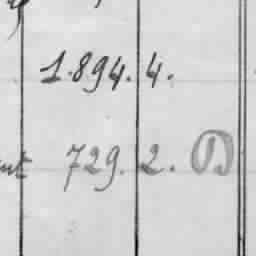 1.894. 4.
729. 2.